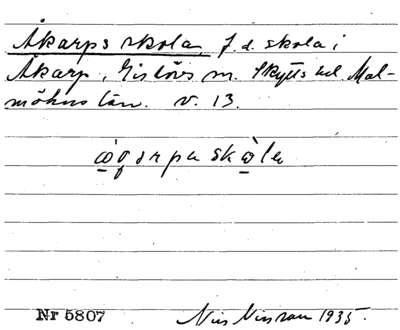 Åkarps skola, f. d. skola i
Åkarp, Gislövs sn. Skytts hd. Mal-
möhus län. v. 13.
skola
Nr 5807 Nils Nilsson 1935.